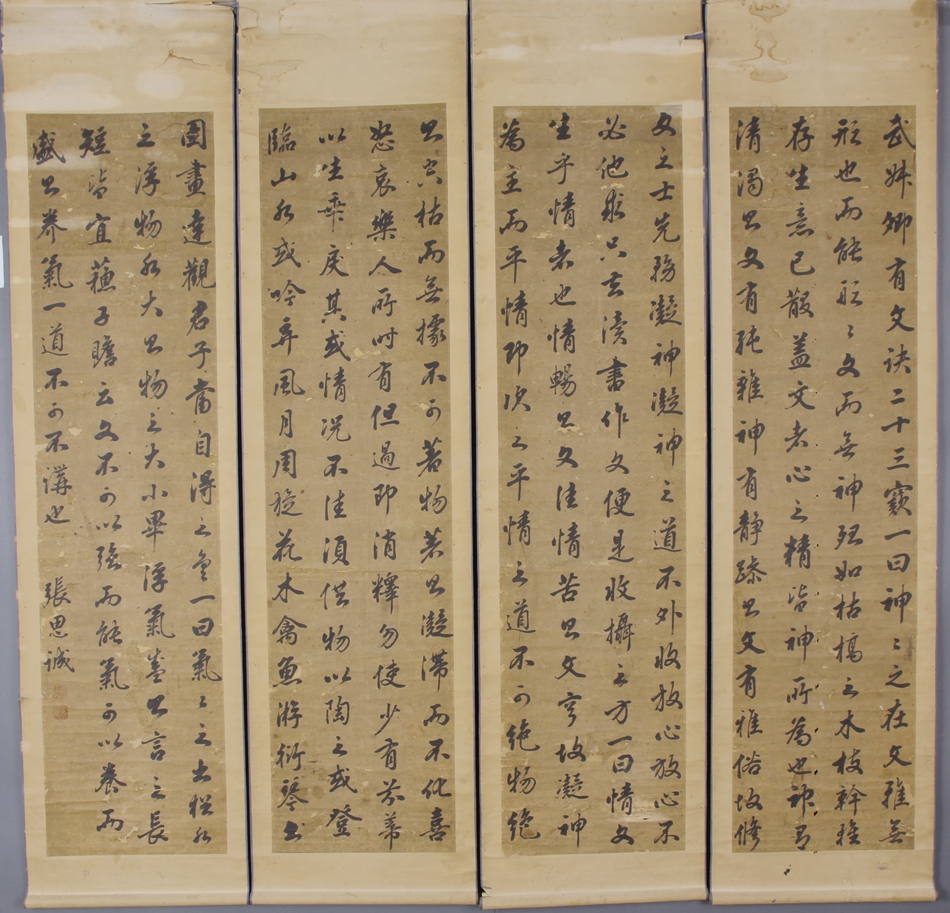 武叔卿有文訣二十三竅一曰神〻之在文雖無
形也而能形〻文而無神頑如枯槁之木枝幹雖
存生意已散蓋文者心之精皆神所為也神有
清濁則文有純雜神有靜躁則文有雅俗故修
文之士先務凝神凝神之道不外收放心放心不
必他求只去讀書作文便是收攝之方一曰情文
生乎情者也情暢則文佳情苦則文窘故凝神
為主而平情即次之平情之道不可絕物絕
則空枯而無據不可著物著則凝滯而不化喜
怒哀樂人所時有但過即消釋勿使少有芥蒂
以生乖戾其或情況不佳須借物以陶之或登
臨山水或吟弄風月周旋花木禽魚游衍琴書
圖畫達觀君子當自得之矣一曰氣〻之出猶水
之浮物水大則物之大小畢浮氣盛則言之長
短皆宜蘇子瞻云文不可以強而能氣可以養而
盛則養氣一道不可不講也 張思誠